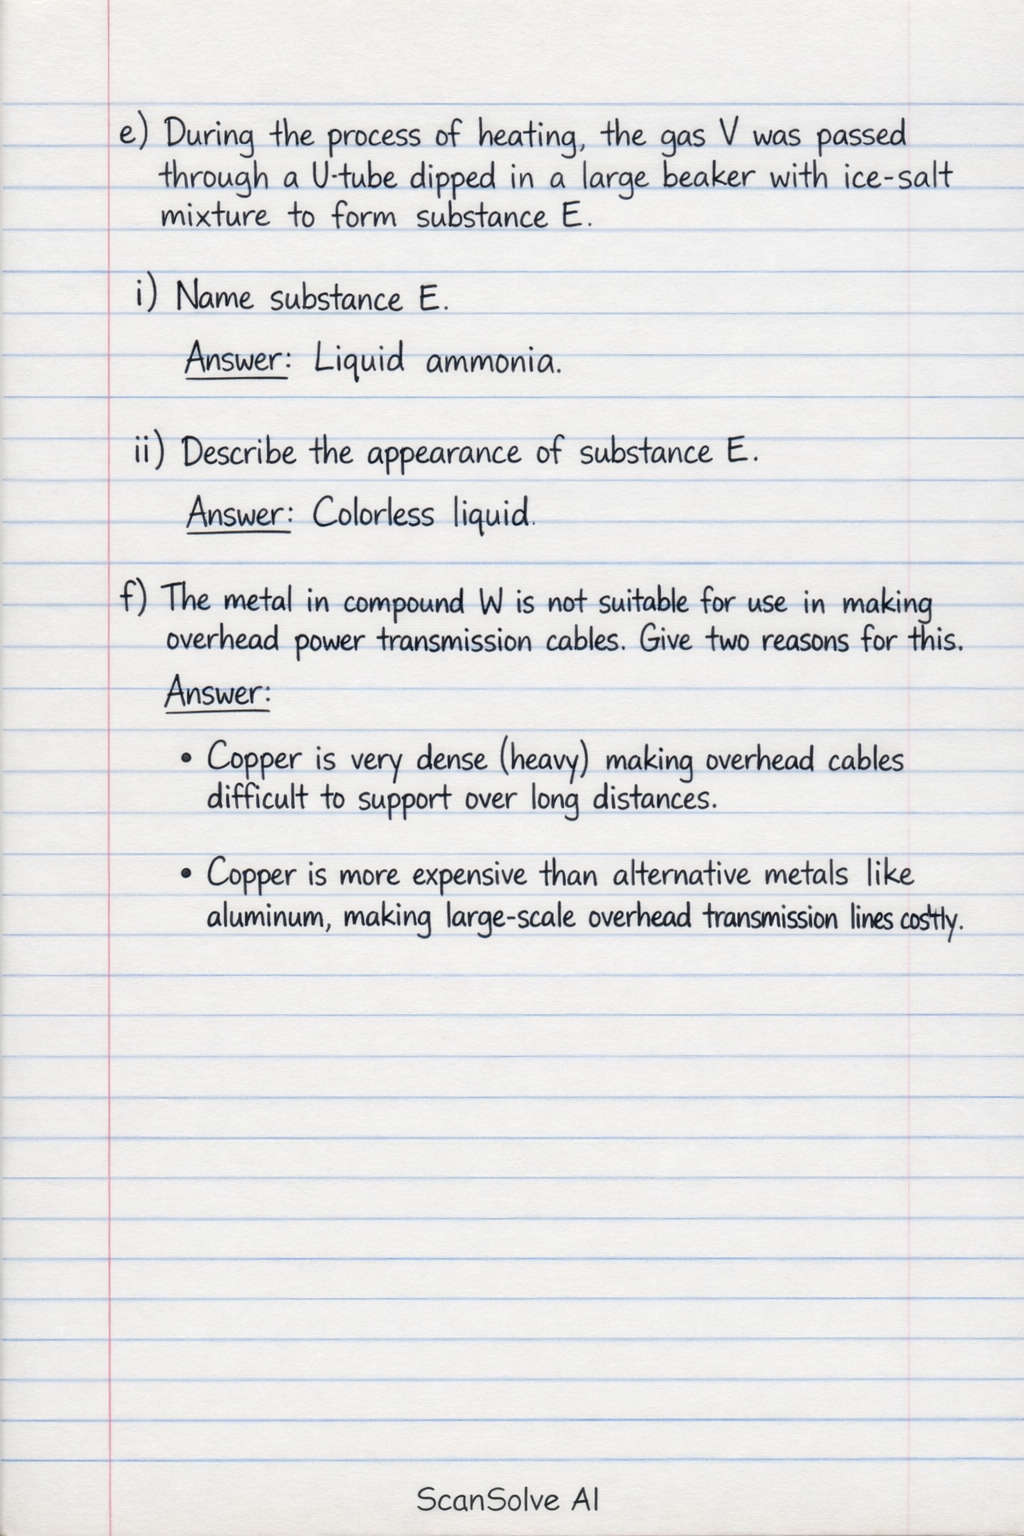 e) During the process of heating, the gas V was passed
through a U-tube dipped in a large beaker with ice-salt
mixture to form substance E.
i) Name substance E.
Answer: Liquid ammonia.
ii) Describe the appearance of substance E.
Answer: Colorless liquid.
f) The metal in compound W is not suitable for use in making
overhead power transmission cables. Give two reasons for this.
Answer:
• Copper is very dense (heavy) making overhead cables
difficult to support over long distances.
• Copper is more expensive than alternative metals like
aluminum, making large-scale overhead transmission lines costly.
ScanSolve AI